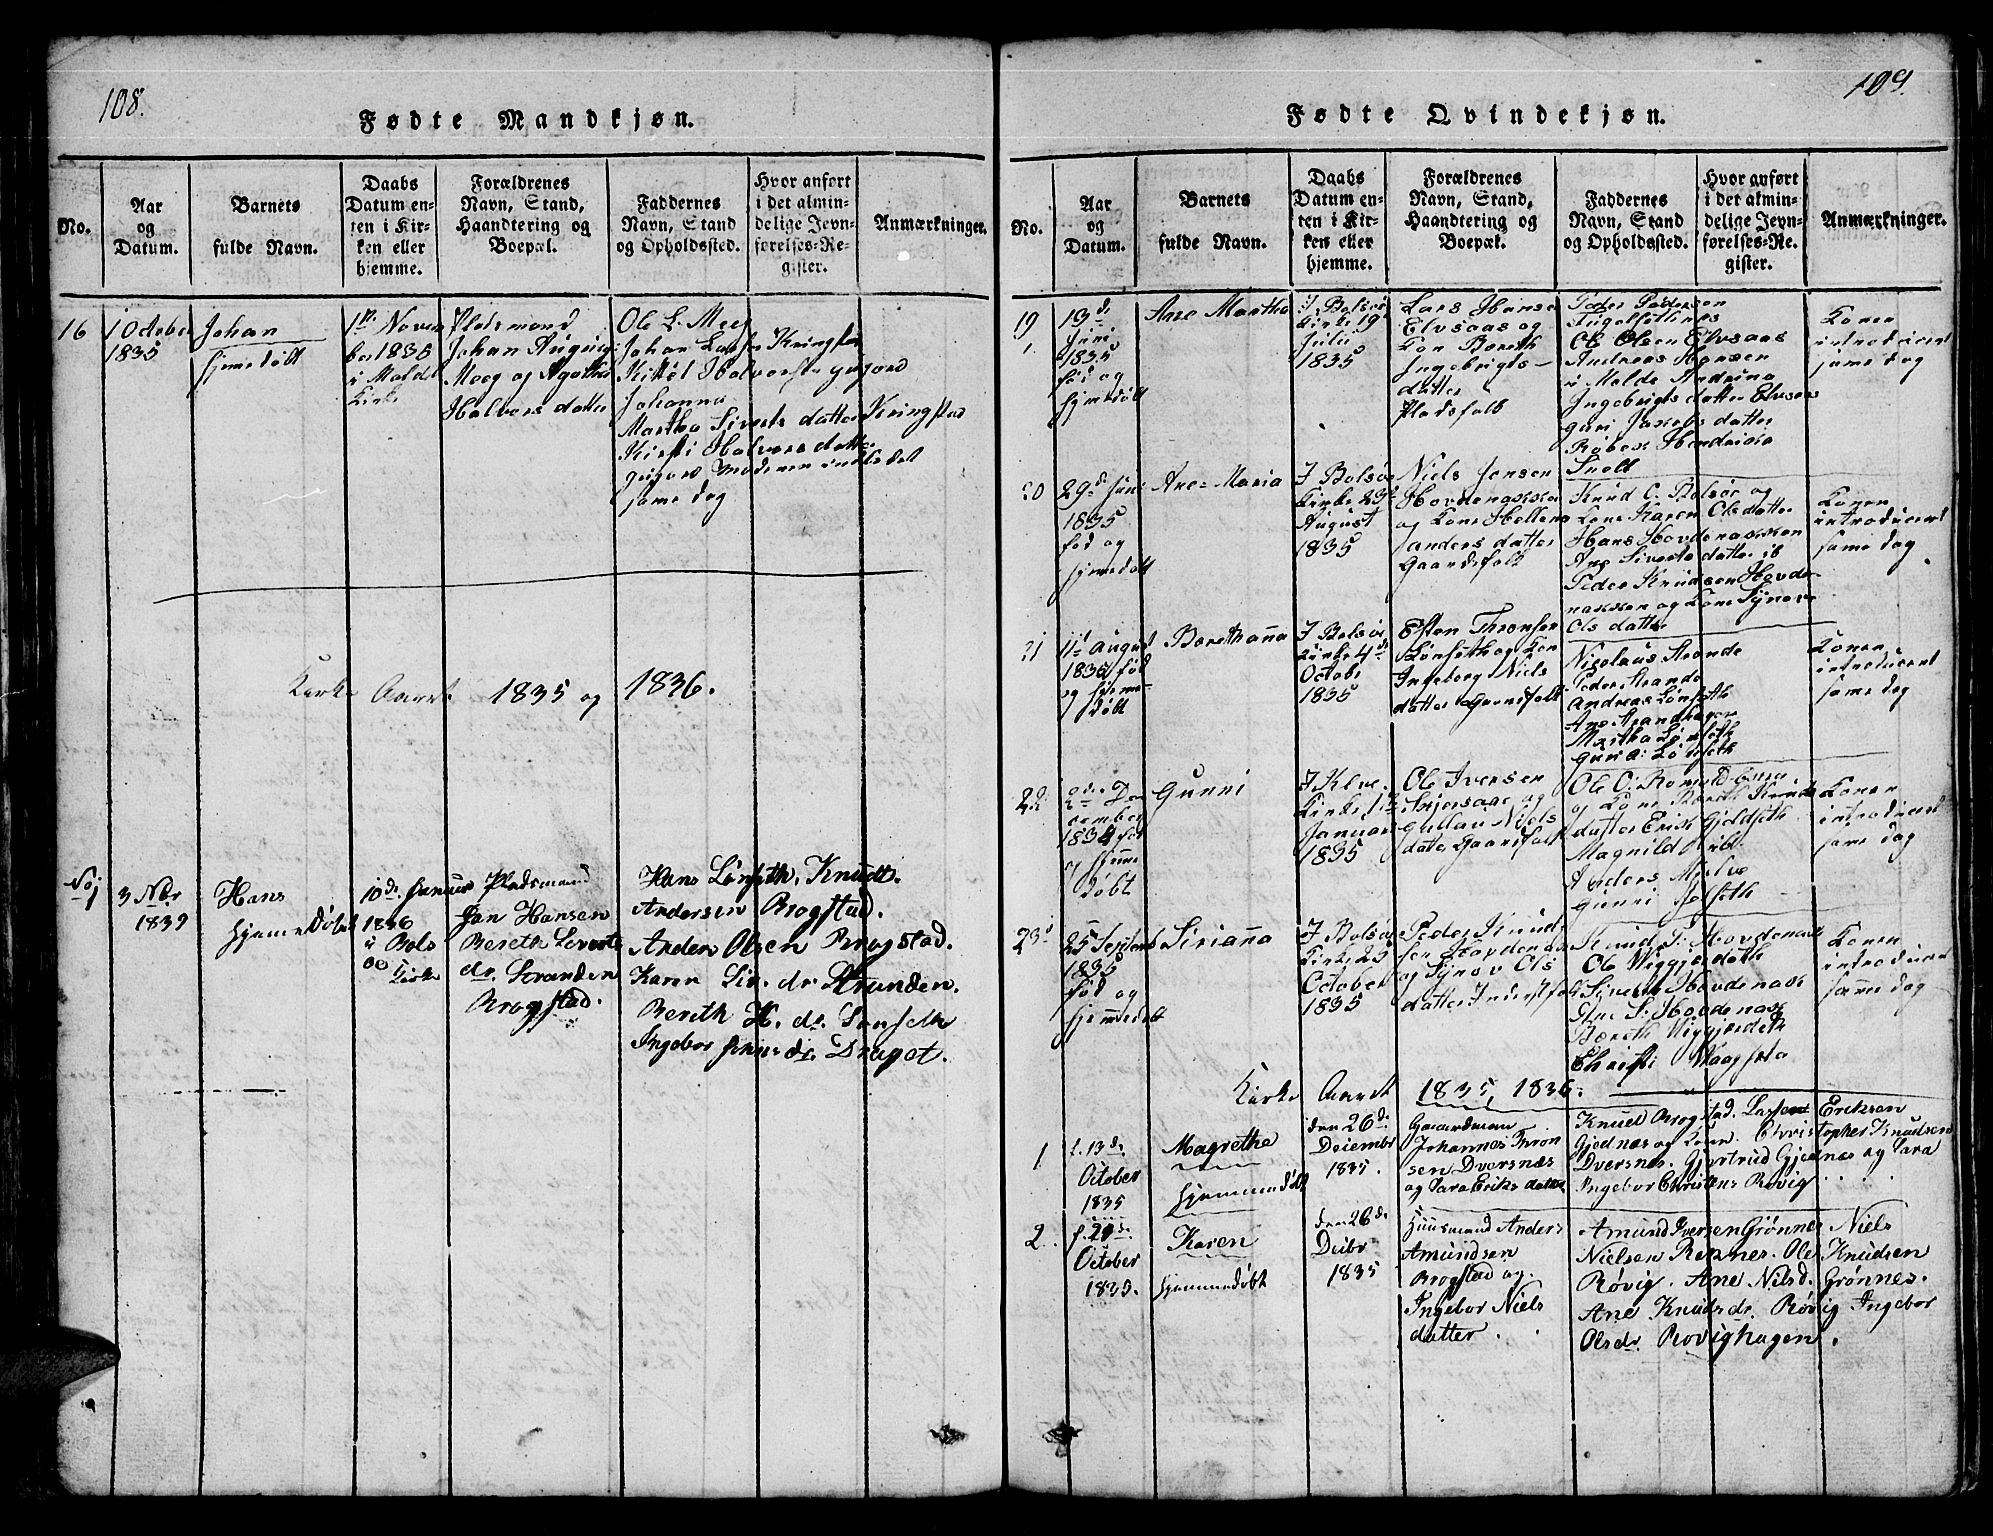 108.
Fødte Mandkjøn.
No.
Aar
og
Datum.
Barnets
fulde Navn.
Daabs
Datum en-
ten i Kir-
ken eller
hjemme.
Forældrenes
Navn, Stand,
Haandtering og
Boepæl.
Faddernes
Navn, Stand
og Opholdssted.
Hvor anført
i det almin-
delige Jevn-
førelses-Re-
gister.
Anmærkninger.
16
1 October
1835
Johan
hjemedøbt
1te Novem
ber 1835
i Molde
Kirke
Pladsmand
Johan August
Moeg og Agathe
Halvors datter
Ole L. Moeg
Johan Kringstad
Kittel Halvorsen
Johanna
Martha Siverts datter Kringstad
Kirsti Halvors datter
Moderen indledet
same dag
Kirke Aaret 1835 og 1836.
No 1
3 Nbr
1839
Hans
hjemedøbt
10de Januar
1836
i Bols
øe
Kirke
Pladsmand
Jon Hansen
Bereth Siverts
dr. Stranden
Brogstad.
Hans Lønseth, Knudt.
Andersen Brogstad.
Anders Olsen Brogstad.
Karen Siv. dr. Stranden.
Bereth H. dr. Lønseth
Ingebor dr. Draget.
109.
Fødte Qvindekjøn.
No.
Aar
og
Datum.
Barnets
fulde Navn.
Daabs
Datum en-
ten i Kir-
ken eller
hjemme.
Forældrenes
Navn, Stand,
Haandtering og
Boepæl.
Faddernes
Navn, Stand
og Opholdssted.
Hvor anført
i det almin-
delige Jevn-
førelses-Re-
gister.
Anmærkninger.
19
13de
Juni
1835
fød og
hjemedøbt
Ane Martha
I Bolsø
Kirke 19
Julu
1835
Lars Hansen
Elvsaas og
Kon Bereth
Ingebrigts-
datter
Pladsfolk
Peder Pedersen
Ole Olsen Elvsaas
Andreas Hansen
i Molde Andrina
Ingebrigts datter Elvsaas
Guri Jakobs datter
Røbek Hendrikke
Snell
Konen
introduceret
same dag
20
29de Juni
1835
fød og
hjemedøbt
Ane Maria
I Bolsø
Kirke 23de
August
1835
Niels Jensen
Hovdenakken
og Kone Hellena
Sanders datter
Gaardsfolk
Knud C. Bolsøe og
Kone Karen Ols datter
Hans Hovdenakken
Ane Siverts datter ib
Peder Knudsen Hovde-
nakken og Kone Synove
Ols datter
Konen
introduceret
same dag
21
11te August
1835 fød
og hjeme-
døbt
Berethanna
I Bolsø
Kirke 4de
October
1835
Esten Thronsen
Lønseth og Kon
Ingeborg Niels
datter Gaardsfolk
Nicolaus Strande
Peder Strande
Andreas Lønseth
Ane Strandhagen
Martha Lønseth
Guri Lønseth
Konen
introduceret
same dag
22
2de De
cember
1834 fød
og hjeme
døbt
Gunni
I Kleve
Kirke 1te
Januar
1835
Ole Iversen
Skjersaae og
Gullau Niels
dater Gaardsfolk
Ole O. Romuld
og Kone Bereth Knuds
datter Erik Gjeldseth
Magnild ibt
Anders Mjelve
Gunni
Konen
introduceret
same dag
23
25 Septemb
1835
fød og
hjemmedøbt
Sirianna
I Bolsø
Kirke 25
October
1835
Peder Knud
sen Hovdenak
og Synov Ols
datter Inderstfolk
Knud P. Hovdenak
Ole Wiggjedeth
Sivert Hovdenak
Ane S. Hovdenak
Bereth Wiggjedeth
Christi Waagseta
Konen
introduceret
same dag
Kirke Aaret 1835, 1836.
1
f. 13de
October
1835
Magrethe
hjemmedøbt
den 26de
Desembr
1835.
Gaardman
Johannes Thron
sen Dversnæs
og Sara Eriks datter
Knud Brogstad. Lars Eriksen
Gjednæs og Konen. Christopher Knudsen
Dversnes. Gjertrud Gjednæs og Sara
Ingebor Christens Røvig
2
f. 21de
October
1835.
Karen
hjemmedøbt
den 26de
Debr
1835
Huusmand Anders
Amundsen
Brogstad og.
Ingebor Niels
datter.
Amund Iversen Grønnes Niels
Nielsen Reknes. Ole Knudsen
Røvig. Ane Nilsd. Grønnes.
Ane Knudsdr. Røvig Ingebor
Olsdr. Rovighagen.